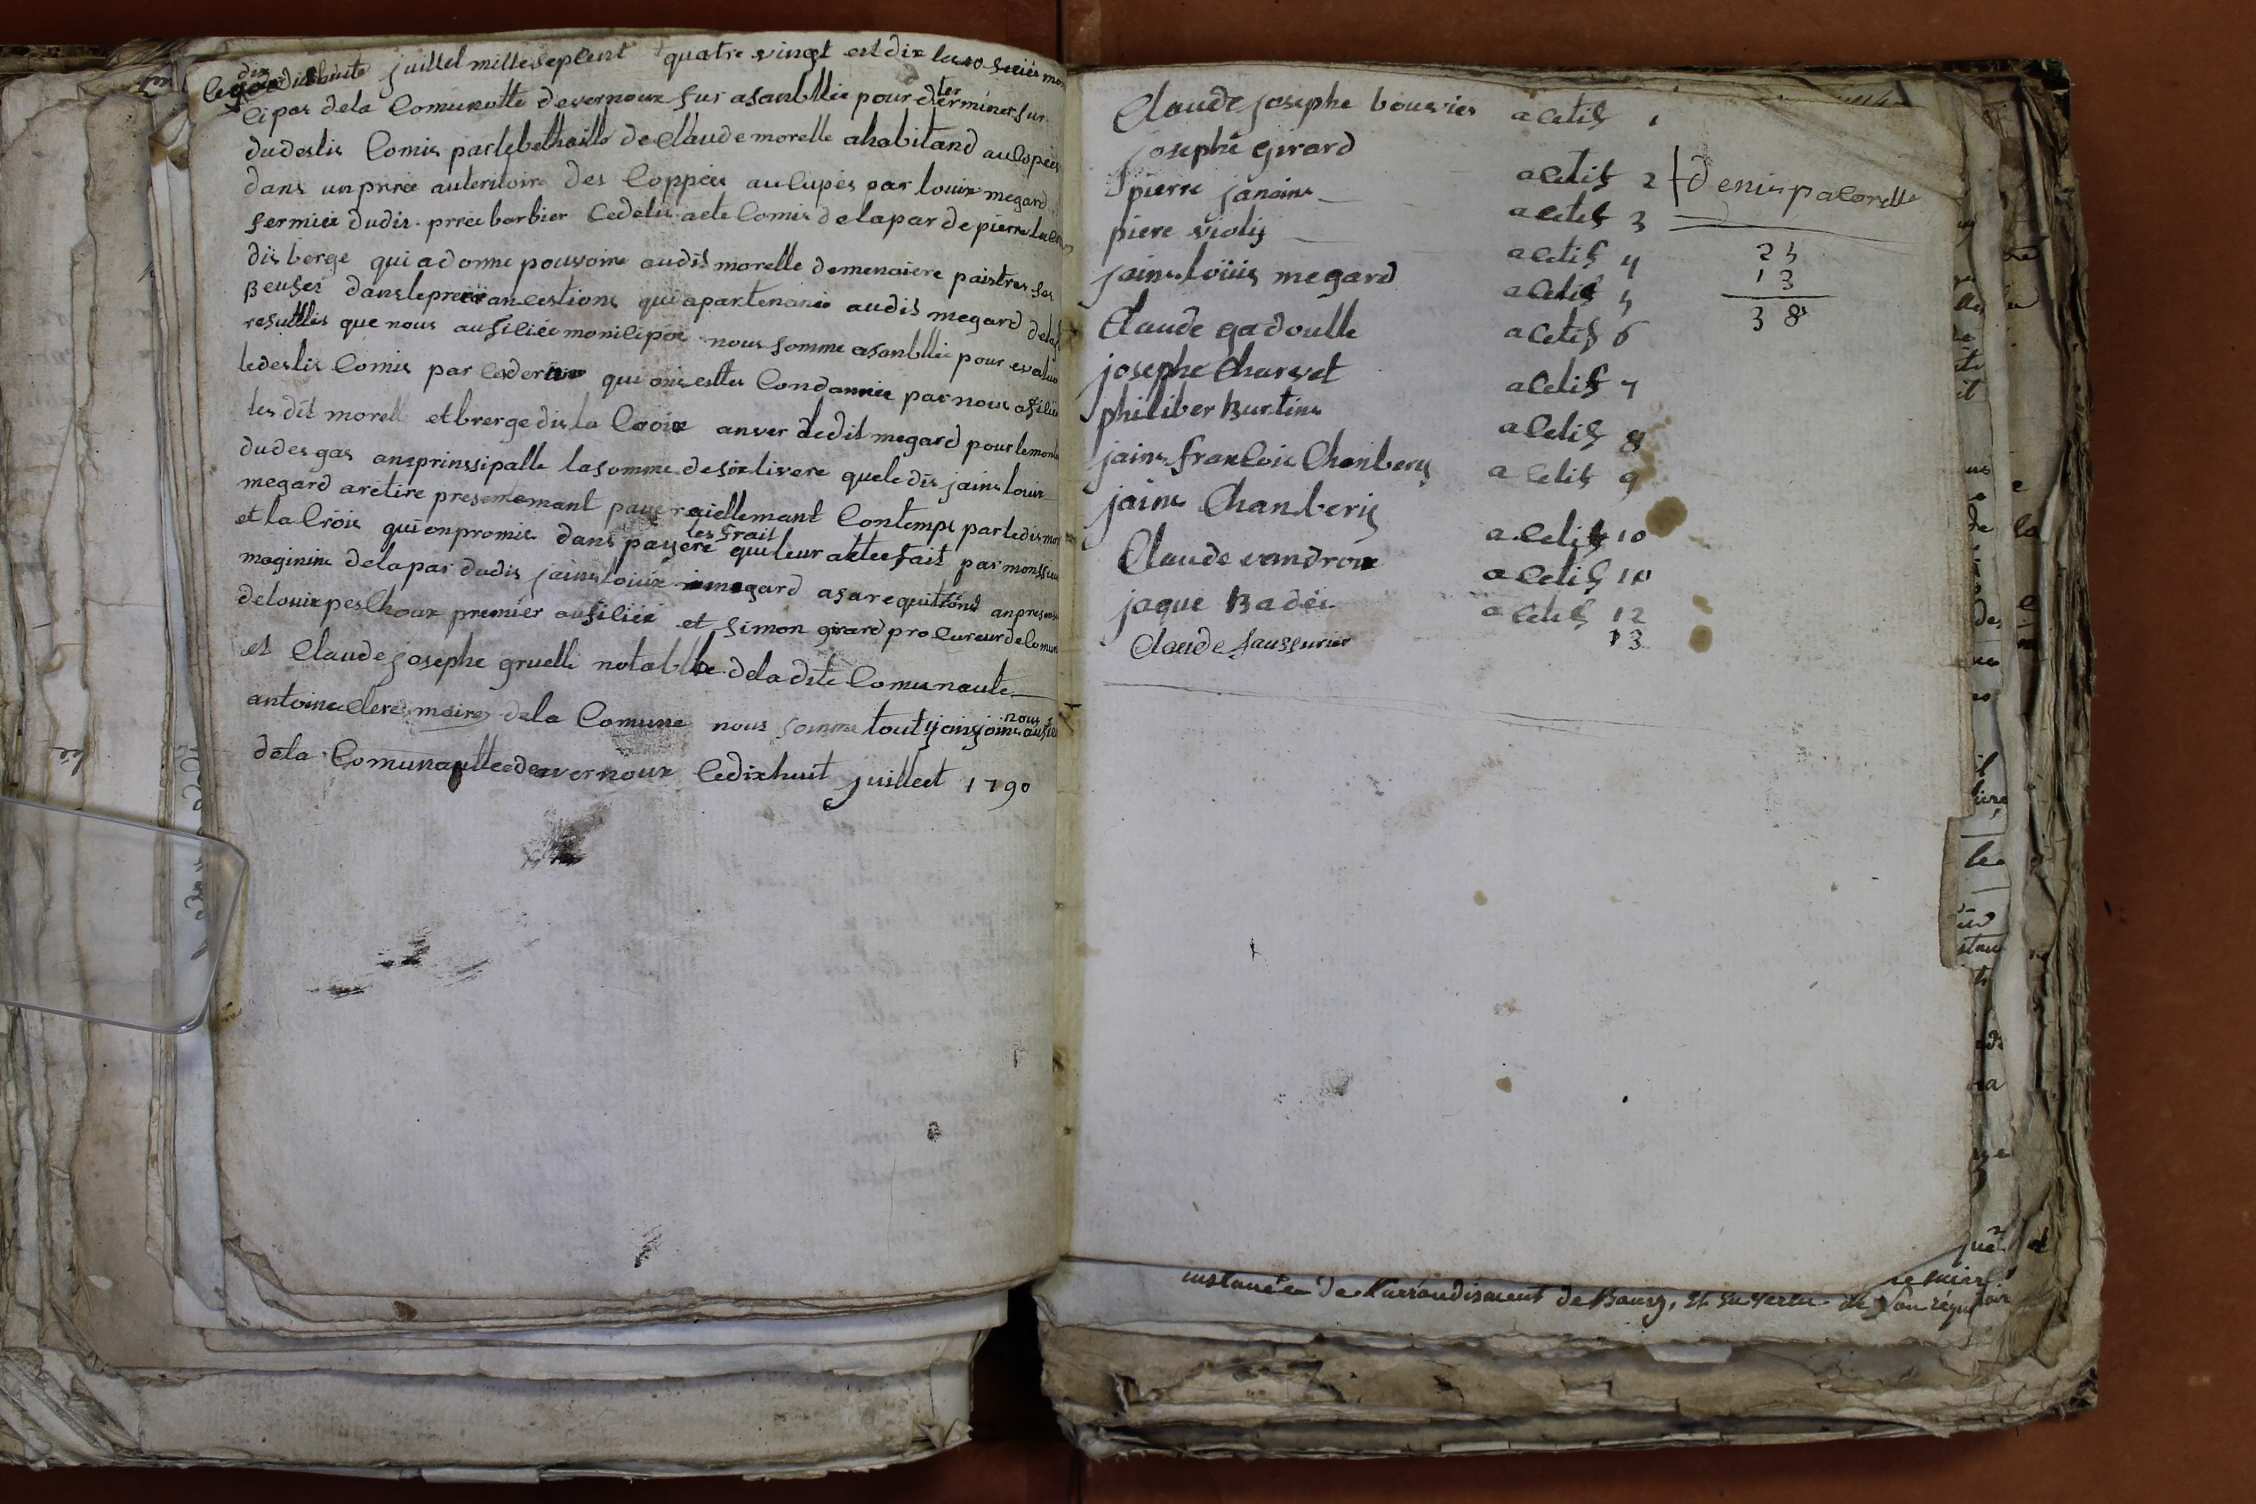 dix
juillel millesepsent quatre vingt est dix
cipas dela Comunotte devernoux sur asanbllie pour determiner sur
dudeslis Comis par lebethaille de Claude morelle ahabitand aucopeis
dans un prree auteritoire des Coppeis aucupes par louix megard
fermiee dudis prree borbier Cedelis acte Comis delapar de pierre
dis berge qui adonne pouvoire audis morelle demenaiere paistres ses
Beufes dansleprree ancestions qui apartenanie audis megard
resulttis que nous aufisiiee monicipoe nous somme asanbllie pour evalue
ledeslis Comis par cesdernie qui ons estter Condannee par nous ofisiie
les dit morell et brerge dis la Croix anver dedit megard pourlemonta
dudesgas ansprinssipalle lasomme desix livere queledis jains louix
megard aretire presentemant paye raiellemant Contemps par ledis mor
et la Croix qui onpromis dans payere les frait quileur attee fait par monssieu
maginin delapar dudis jains louix megard asarequittond anpresens
delouix peschoux premier aufisiiee et simon girard procureur de lacomun
et Claude josephe gruelli notablle deladite Comunaute
antoine Clere maires dela Comune nous somme tout
nous
dela Comunauttee devernoux ledixhuit juilleet 1790
Claude josephe bouvier acetis 1
josephe girard
pierre janoine acetis 2 denis pacorelle
piere violis acetis 3
jains loüis megard acetis 4
25
13
38
Claude gadoulle acetis 5
josephe Charvet acetis 6
philiber Burtins acetis 7
jains francois Chanberis acetis 8
jains Chanberis acetis 9
Claude vandroux acetis 10
jaque Badei acetis 10
Claude saussurier acetis 12
13
instance de l'arrondissement de Bourg, et en vertu de son réqui